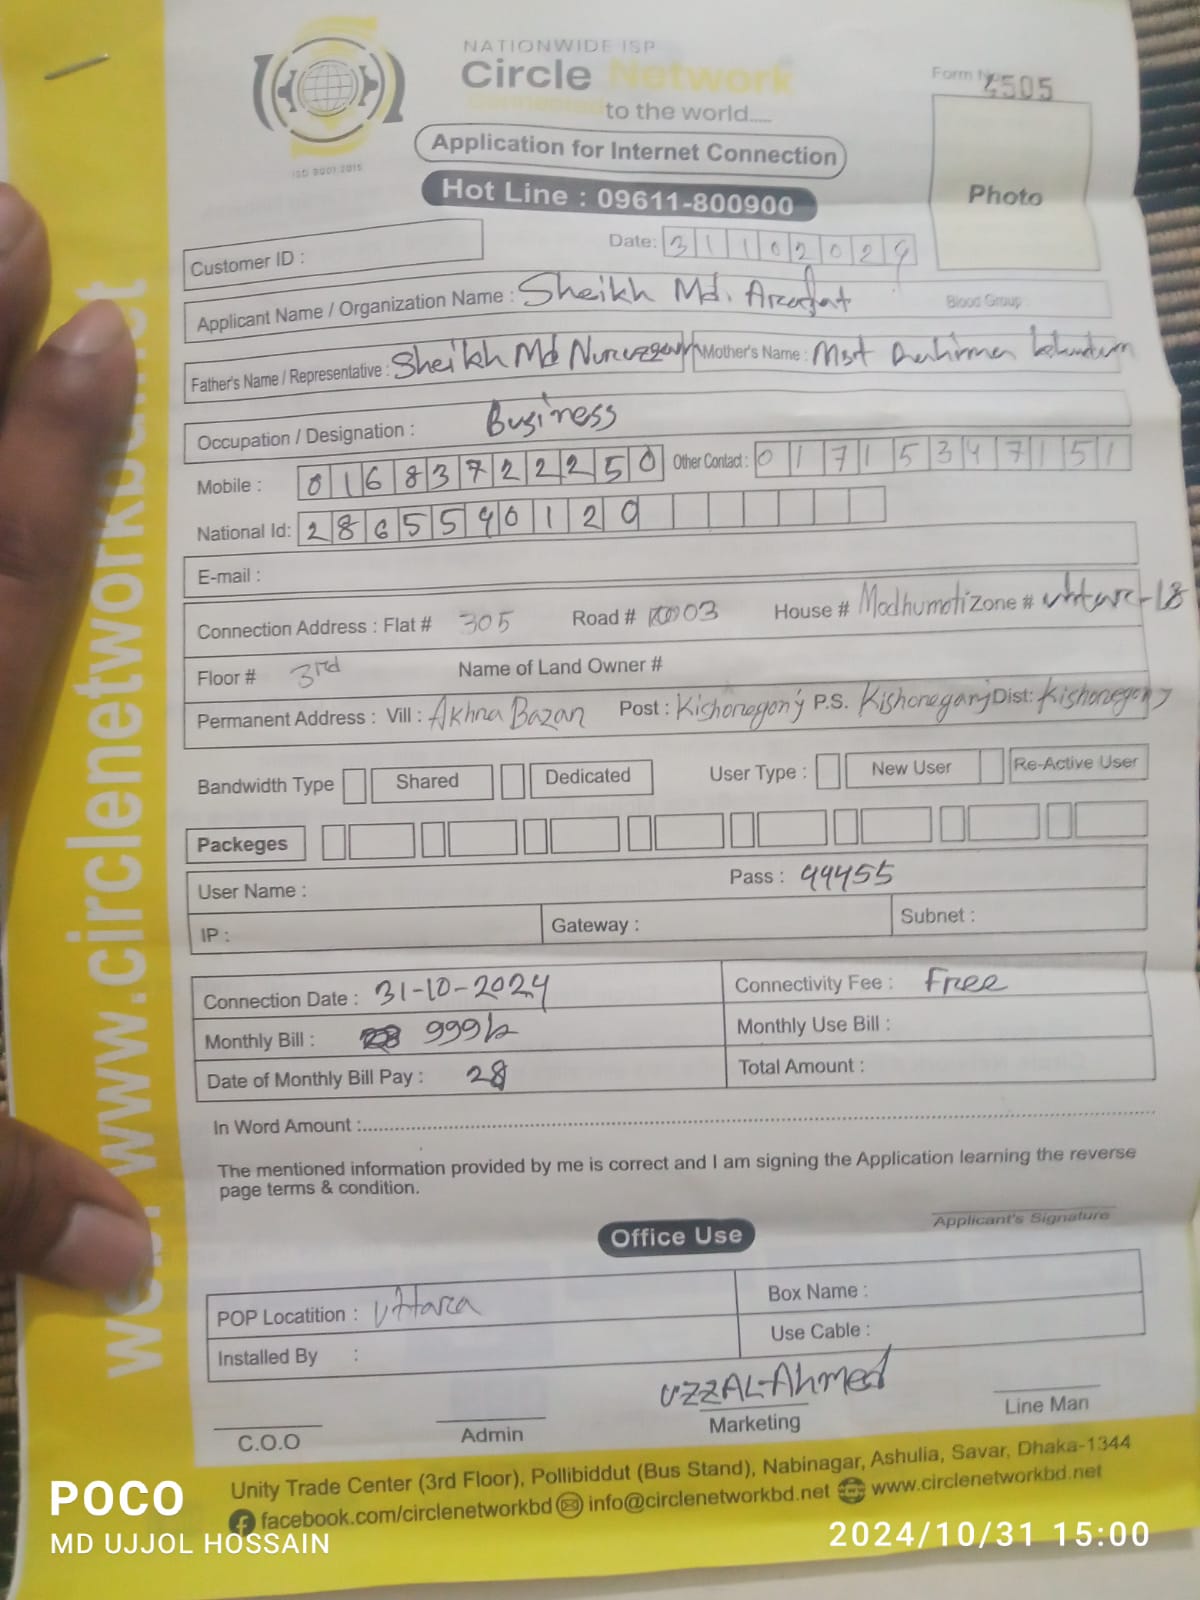 NATIONWIDE ISP
Circle Network
Connected
to the world.....
ISO 9001:2015
Form No 4505
Photo
Application for Internet Connection
Hot Line : 09611-800900
Customer ID :
Date: 31102024
Applicant Name / Organization Name : Sheikh Md. Arafat
Blood Group
Father's Name / Representative : Sheikh Md Nuruzzaman Mother's Name : Mst
Occupation / Designation : Business
Mobile : 01683722250 Other Contact : 01715347151
National Id: 2865590120
E-mail :
Connection Address : Flat # 305 Road # 03 House # Modhumoti Zone # -18
Floor # 3rd Name of Land Owner #
Permanent Address : Vill : Akhra Bazar Post : Kishoregonj P.S. Kishoreganj Dist: Kishoregonj
Bandwidth Type Shared Dedicated User Type : New User Re-Active User
Packeges
User Name : Pass : 44455
IP : Gateway : Subnet :
Connection Date : 31-10-2024 Connectivity Fee : Free
Monthly Bill : 999/= Monthly Use Bill :
Date of Monthly Bill Pay : 28 Total Amount :
In Word Amount :
The mentioned information provided by me is correct and I am signing the Application learning the reverse
page terms & condition.
Applicant's Signature
Office Use
POP Locatition : Uttara Box Name :
Installed By : Use Cable :
UZZAL-Ahmed
C.O.O Admin Marketing Line Man
Unity Trade Center (3rd Floor), Pollibiddut (Bus Stand), Nabinagar, Ashulia, Savar, Dhaka-1344
facebook.com/circlenetworkbd info@circlenetworkbd.net www.circlenetworkbd.net
www.circlenetworkbd.net
POCO
MD UJJOL HOSSAIN
2024/10/31 15:00